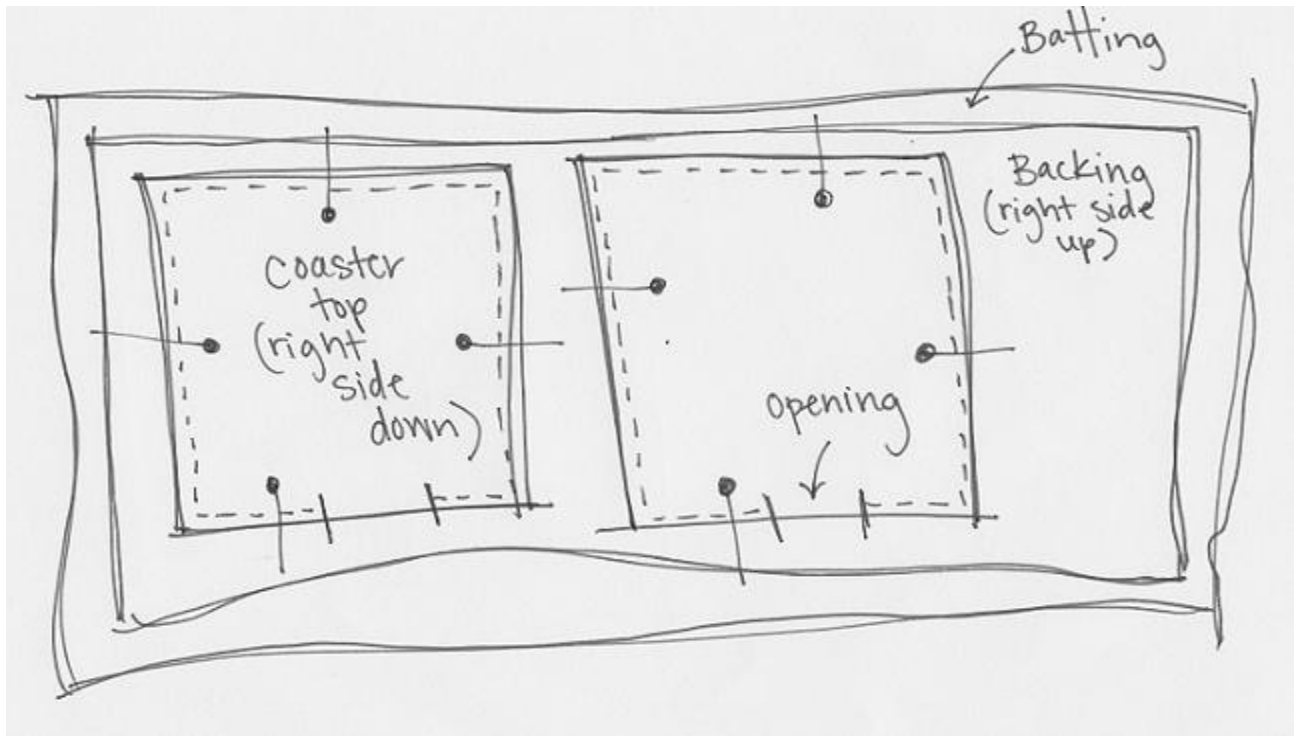 Batting
Backing
(right side
up)
coaster
top
(right
side
down)
opening